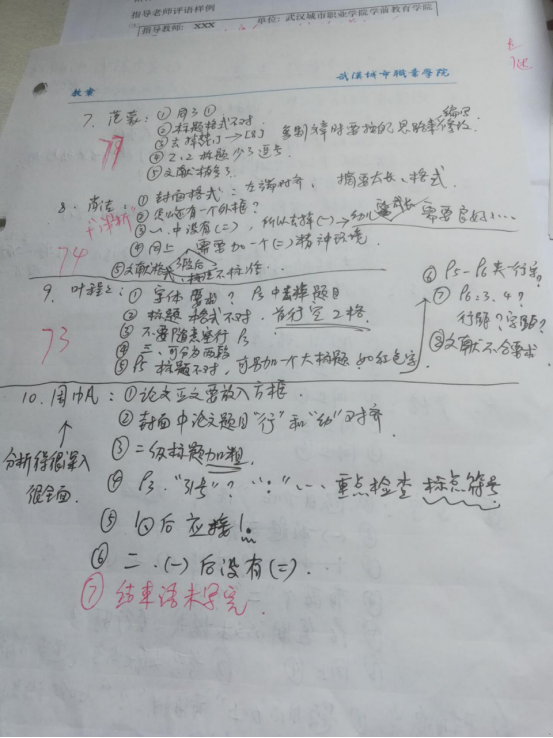 指导老师评语样例
指导教师: XXX 单位: 武汉城市职业学院学前教育学院
教案 武汉城市职业学院
7、范蒙: ① 同3 ①
② 标题格式不对.
④ 2.2 标题少了逗号
⑤ 文献格式
79
8、肖洁: ① 封面格式: 左端对齐、摘要太长、格式
② 怎么还有一个外框?
③ 一、中没有(二), 所以去掉(一)
④ 同上 需要加一个(二)精神环境.
74
9、叶 : ① 字体 要求? P3 中去掉题目
② 标题 格式不对. 首行空2格.
③ 不要随意空行 P3
④ 三、可分为两段
⑤ P5 标题不对, 可另加一个大标题, 如红色字
⑥ P5-P6 夹一行字?
⑦ P6: 3、4?
行距? 字距?
⑧ 文献不合要求
73
10. 周巾凡: ① 论文正文要放入方框.
② 封面中论文题目"行"和"幼"对齐
③ 二级标题加粗.
④ P3. "引号"? 重点检查 标点符号
⑤ 1 后应接1.
⑥ 二、(一)后没有(二).
⑦ 结束语未写完
分析得很深入
很全面.